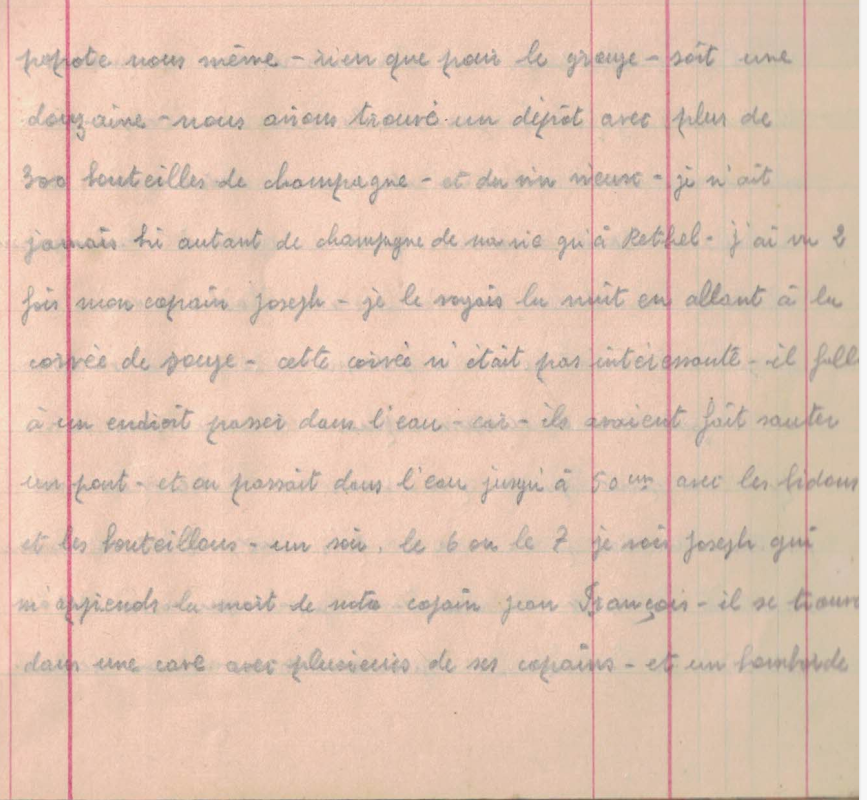 popote nous même - rien que pour le groupe - soit une
douzaine - nous avions trouvé un dépôt avec plus de
300 bouteilles de champagne - et du vin vieux - je n'ait
jamais bu autant de champagne de ma vie qu'à Rethel - j'ai vu 2
fois mon copain Joseph - je le voyais la nuit en allant à la
corvée de soupe - cette corvée n'était pas intéressante - il fall
à un endroit passer dans l'eau - car - ils avaient fait sauter
un pont - et on passait dans l'eau jusqu'à 50 cm avec les bidons
et les bouteillons - un soir, le 6 ou le 7 je vois Joseph qui
m'apprends la mort de notre copain Jean François - il se trouve
dans une cave avec plusieurs de ses copains - et un bombarde